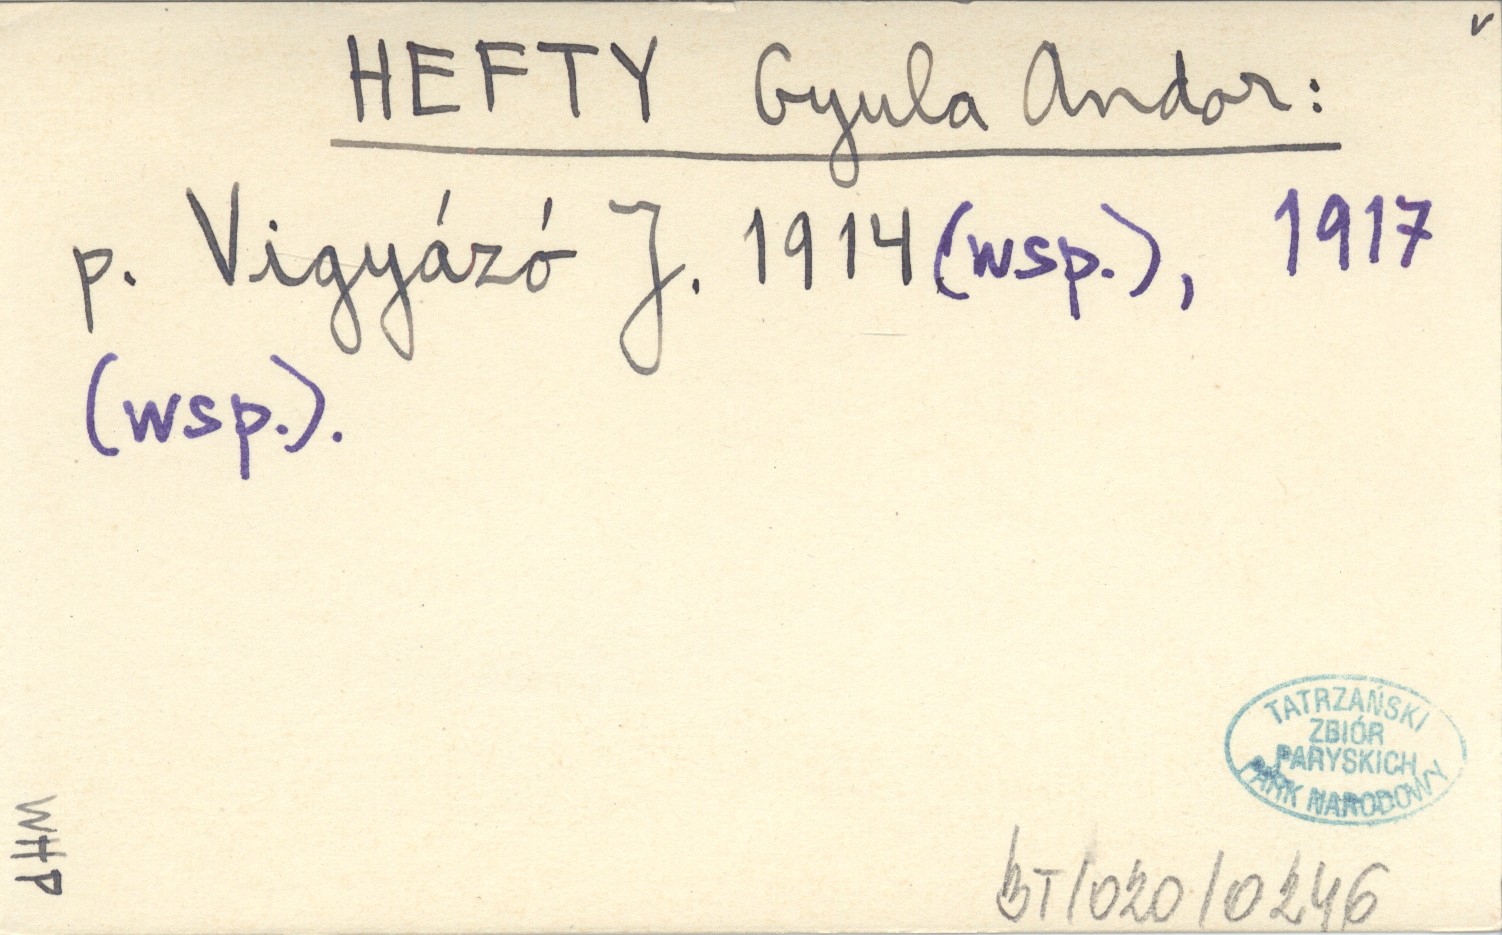 v
HEFTY Gyula Andor:
p. Vigyázó J. 1914 (wsp.), 1917
(wsp.).
TATRZAŃSKI
ZBIÓR
PARYSKICH
PARK NARODOWY
WHP
BT/020/0246